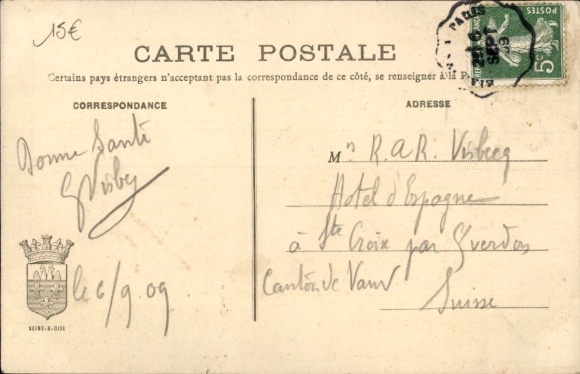 15€
CARTE POSTALE
Certains pays étrangers n'acceptant pas la correspondance de ce côté, se renseigner à la P
CORRESPONDANCE
ADRESSE
Bonne Santé
le 6/9.09
Mrs R.A.R. Visbecq
Hotel d'Espagne
à Ste Croix par Yverdon
Canton de Vaud
Suisse
SEINE-&-OISE
PARIS
6
SEPT
09
POSTES
5c